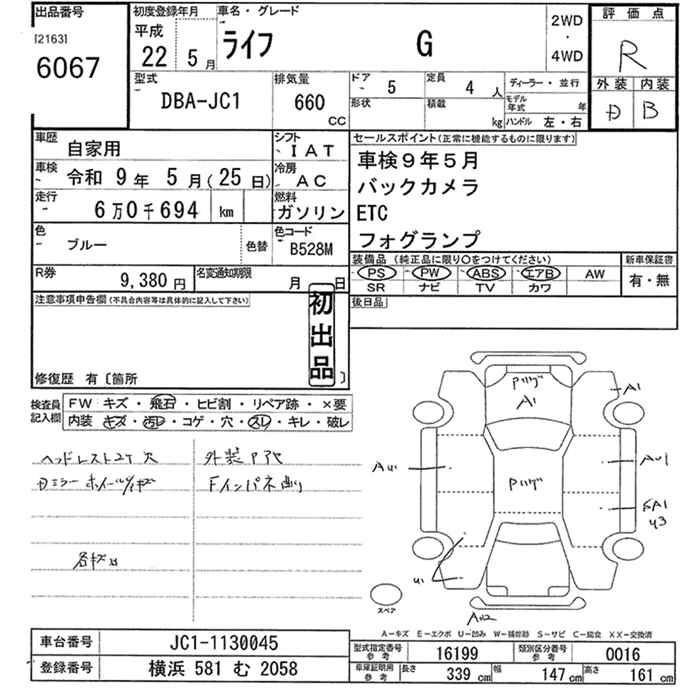 出品番号 初度登録年月 車名・グレード 2WD ・ 4WD 評価点
[2163] 6067 平成 22 5月 ライフ G R
型式 DBA-JC1 排気量 660 cc ドア 5 定員 4人 ディーラー・並行 外装 内装
形状 積載 kg モデル年式 年 ハンドル 左・右 B
車歴 自家用 シフト IAT セールスポイント(正常に機能するものに限ります)
車検 令和 9年 5月(25日) 冷房 AC 車検9年5月
バックカメラ
走行 6万0千694 km 燃料 ガソリン ETC
フォグランプ
色 ブルー 色替 色コード B528M 装備品(純正品に限り○をつけてください) 新車保証書
R券 9,380円 名変通知期限 月 日 PS PW ABS エアB AW 有・無
SR ナビ TV カワ
注意事項申告欄(不具合内容等は具体的に記入して下さい) 後日品
初出品
修復歴 有〔箇所 〕
検査員記入欄 FW キズ・飛石・ヒビ割・リペア跡・×要
内装 キズ・汚レ・コゲ・穴・スレ・キレ・破レ
A1
A1
AU1
AU2
スペア
A-キズ E-エクボ U-凹み W-補修跡 S-サビ C-腐食 XX-交換済
車台番号 JC1-1130045 型式指定番号 参考 16199 類別区分番号 参考 0016
登録番号 横浜 581 む 2058 車庫証明用 参考 長さ 339 cm 幅 147 cm 高さ 161 cm